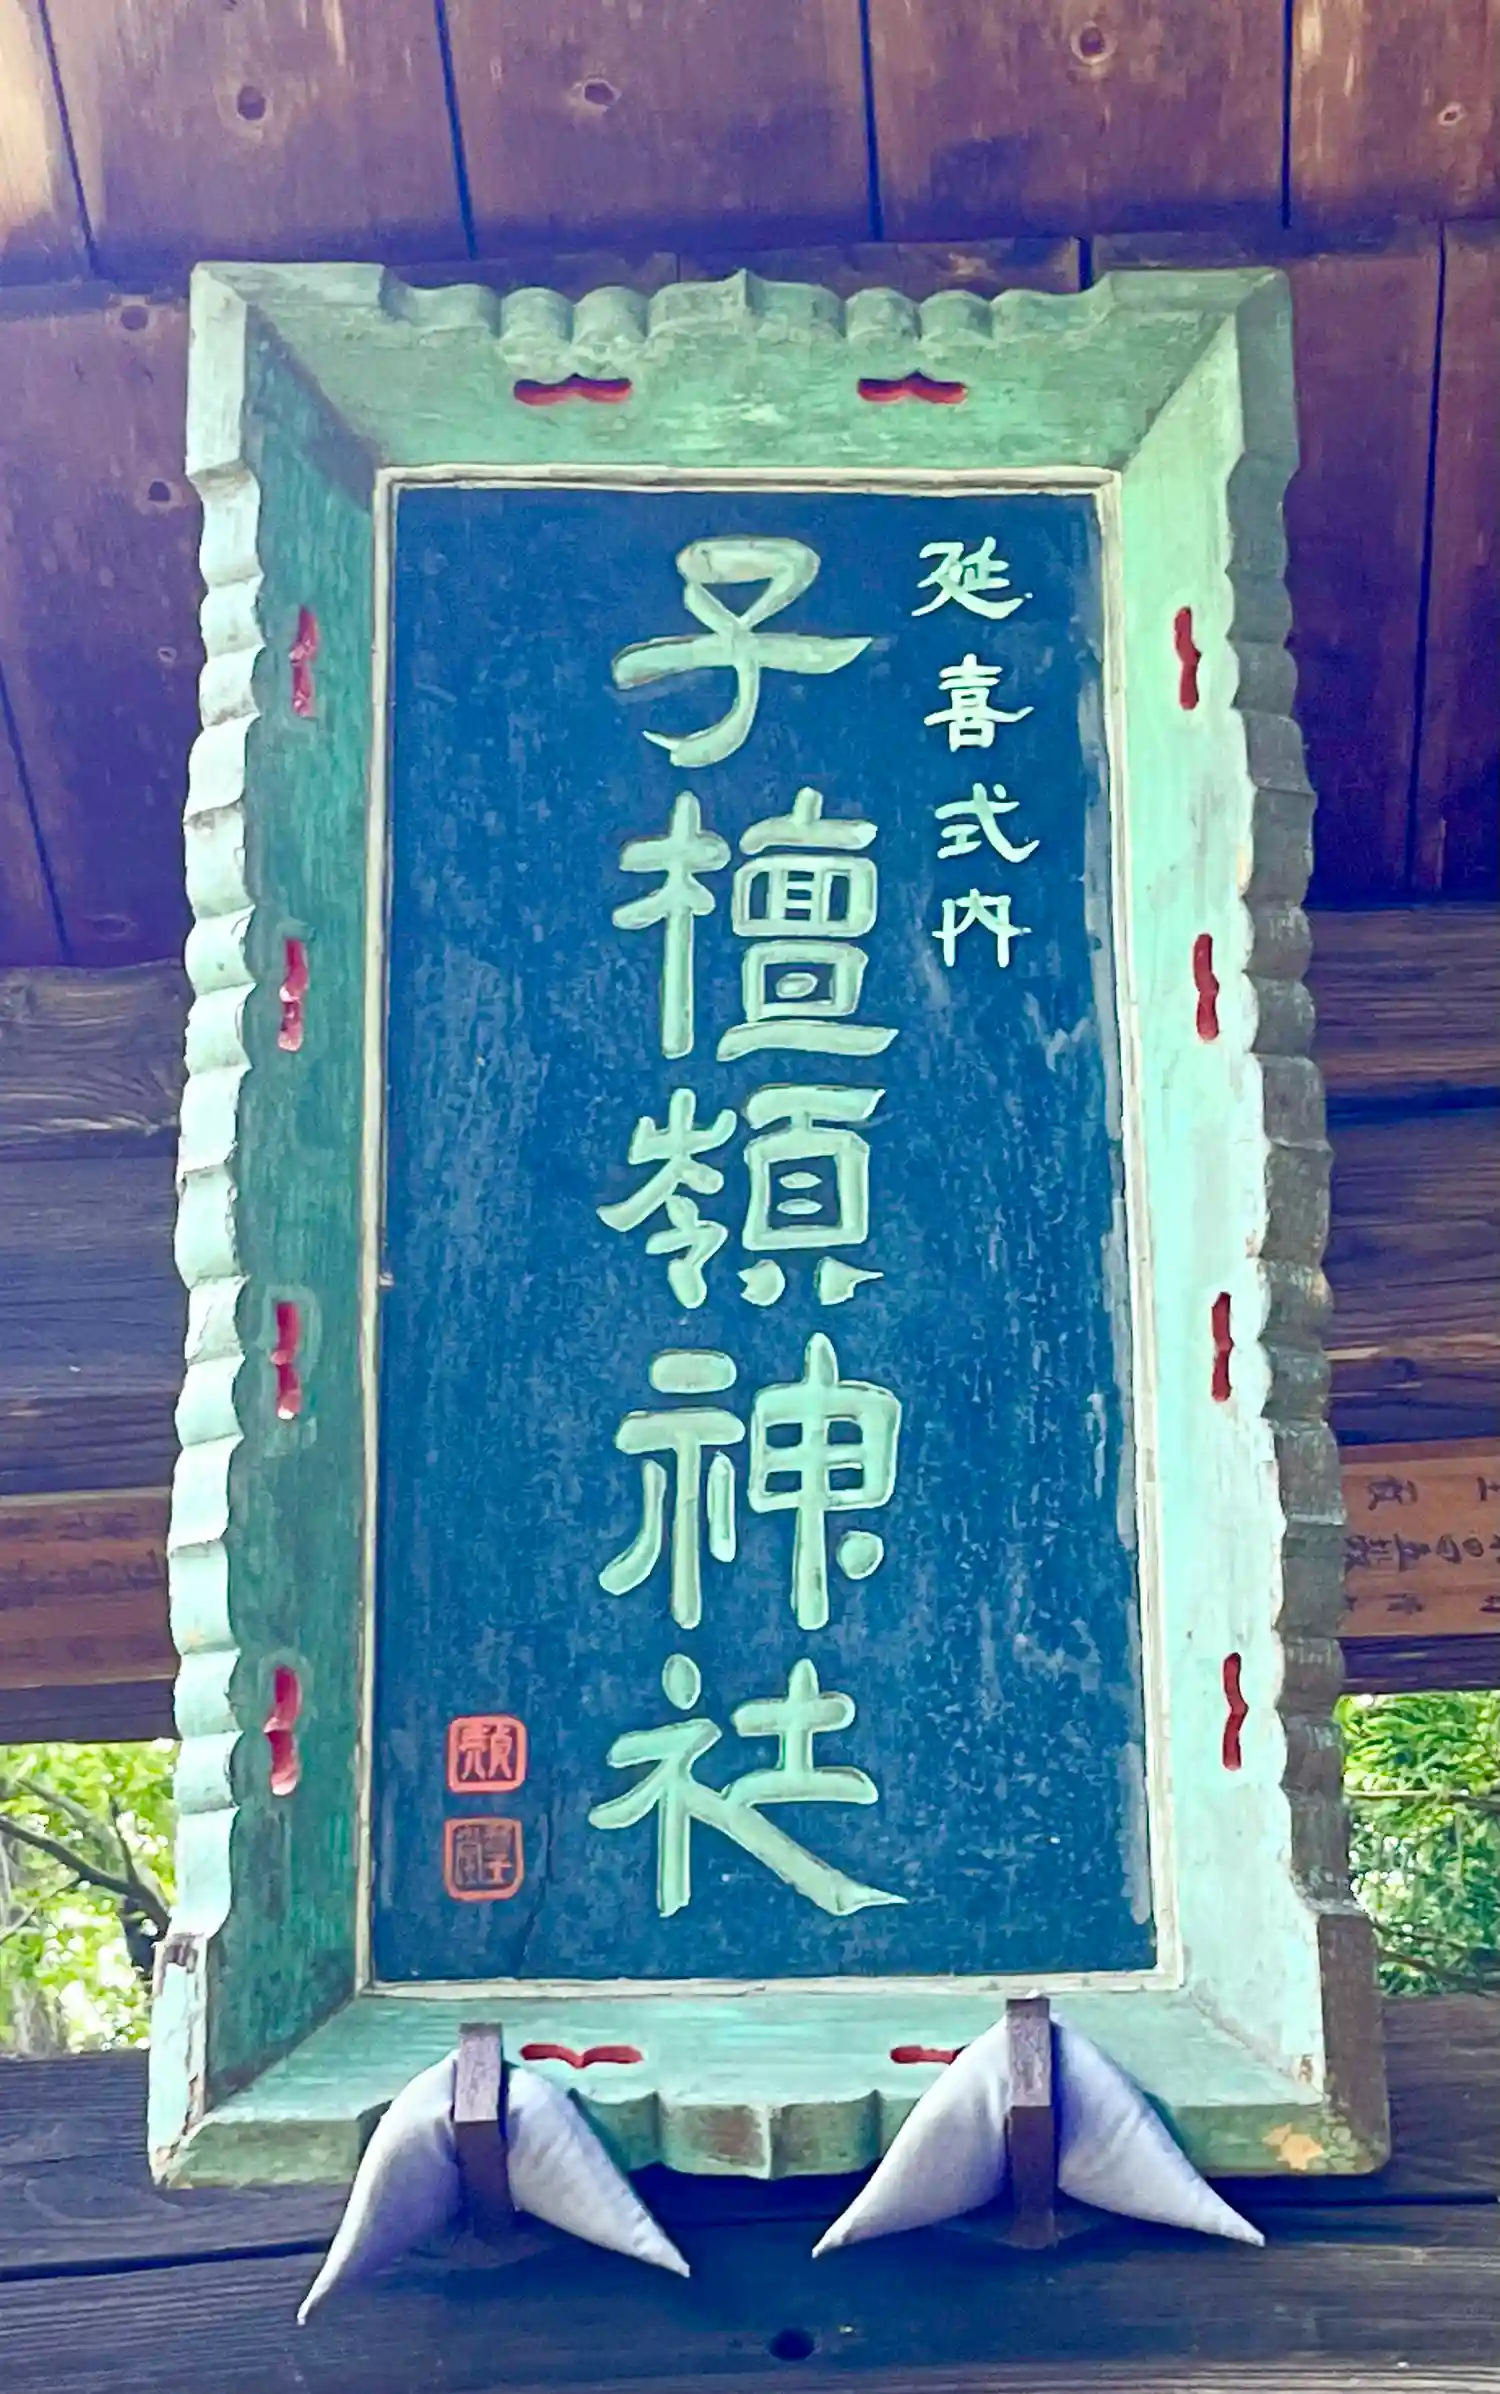 延喜式内
子檀嶺神社